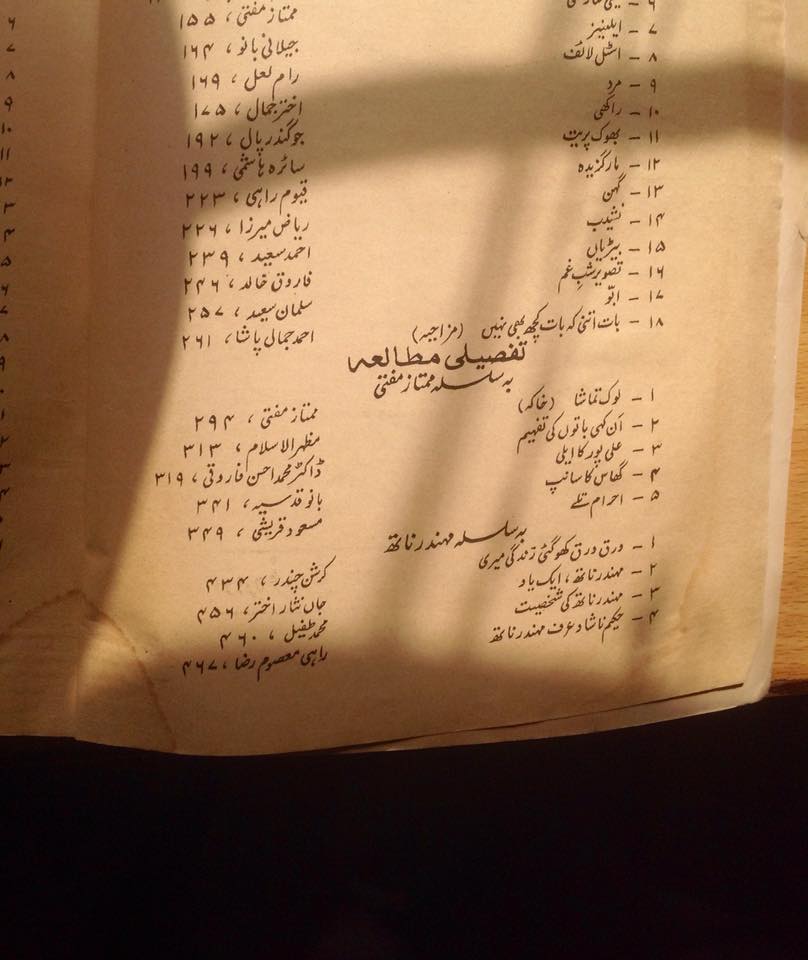 ۷ - ایلینیز ممتاز مفتی ، ۱۵۵
۸ - اسٹل لائف جیلانی بانو ، ۱۶۴
۹ - مرد رام لعل ، ۱۶۹
۱۰ - راکھی اختر جمال ، ۱۷۵
۱۱ - بھوک پریت جوگندر پال ، ۱۹۲
۱۲ - مارگزیدہ سائرہ ہاشمی ، ۱۹۹
۱۳ - گہن قیوم راہی ، ۲۲۳
۱۴ - نشیب ریاض میرزا ، ۲۲۶
۱۵ - بیڑیاں احمد سعید ، ۲۳۹
۱۶ - تصویرِ شبِ غم فاروق خالد ، ۲۴۶
۱۷ - ابّو سلمان سعید ، ۲۵۷
۱۸ - بات اتنی کہ بات کچھ بھی نہیں (مزاحیہ) احمد جمال پاشا ، ۲۶۱
تفصیلی مطالعہ
بہ سلسلہ ممتاز مفتی
۱ - لوک تماشا (خاکہ) ممتاز مفتی ، ۲۹۴
۲ - اَن کہی باتوں کی تفہیم مظہر الاسلام ، ۳۱۳
۳ - علی پور کا ایلی ڈاکٹر محمد احسن فاروقی ، ۳۱۹
۴ - گھاس کا سانپ بانو قدسیہ ، ۳۴۱
۵ - احرام تلے مسعود قریشی ، ۳۴۹
بہ سلسلہ مہندر ناتھ
۱ - ورق ورق کھو گئی زندگی میری کرشن چندر ، ۴۳۴
۲ - مہندر ناتھ ، ایک یاد جاں نثار اختر ، ۴۵۶
۳ - مہندر ناتھ کی شخصیت محمد طفیل ، ۴۶۰
۴ - حکیم ناشاد عرف مہندر ناتھ راہی معصوم رضا ، ۴۶۷